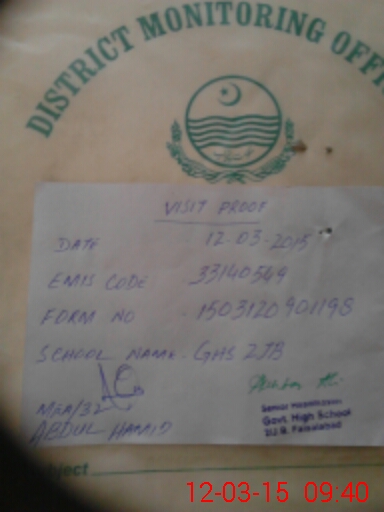 DISTRICT MONITORING OFFI
VISIT PROOF
DATE 12-03-2015
EMIS CODE 33140549
FORM NO - 1503120901198
SCHOOL NAME - GHS 2JB
MEA/32
ABDUL HAMID
Senior Headmaster
Govt. High School
2J.B. Faisalabad
bject
12-03-15 09:40